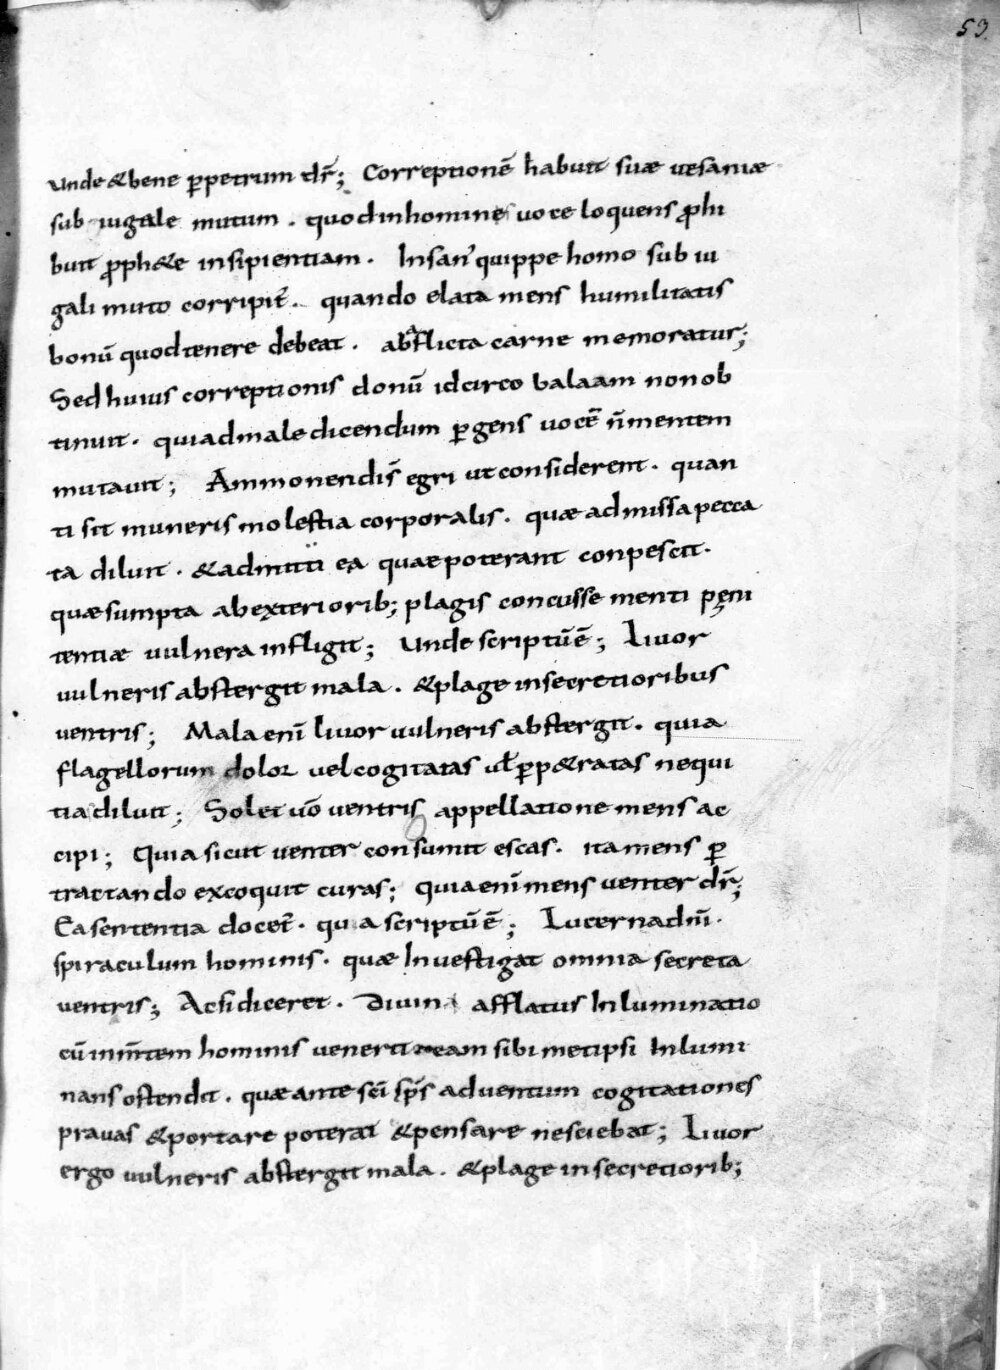 53.
unde &bene ꝑpetrum dr̄; Correptionē habuit suæ vesaniæ
sub iugale mutum . quodinhomines voce loquens ꝓhi
buit ꝓph&ae insipientiam . Insan' quippe homo sub iu
gali muto corripit̄ . quando elata mens humilitatis
bonū quodtenere debeat . abaflicta carne memoratur;
Sed huius correptionis donū idcirco balaam non ob
tinuit . quiadmaledicendum ꝑgens vocē n̄mentem
mutauit; Ammonendis̄ egri ut considerent . quan
ti sit muneris molestia corporalis . quæ admissa pecca
ta diluit . &admitti ea quae poterant conpescit .
quæsumpta abexteriorib; plagis concusse menti pęni
tentiæ vulnera infligit; Unde scriptū ē; Livor
vulneris abstergit mala . &plage insecretioribus
ventris; Mala enī livor vulneris abstergit . quia
flagellorum dolor vel cogitatas ul̄ ꝑp&ratas nequi
tia diluit; Solet vō ventris appellatione mens ac
cipi; Quia sicut venter consumit escas . ita mens ꝑ
tractando excoquit curas; quia enī mens venter dr̄;
Ea sententia docet̄ . qua scriptū ē; Lucerna dn̄i .
spiraculum hominis . quæ Investigat omnia secreta
ventris; Acsi diceret . Divini afflatus Inluminatio
cū inm̄tem hominis venerit eam sibimetipsi Inlumi
nans ostendit . quæ ante sc̄i sp̄s adventum cogitationes
pravas &portare poterat &pensare nesciebat; Livor
ergo vulneris abstergit mala . &plage in secretiorib;